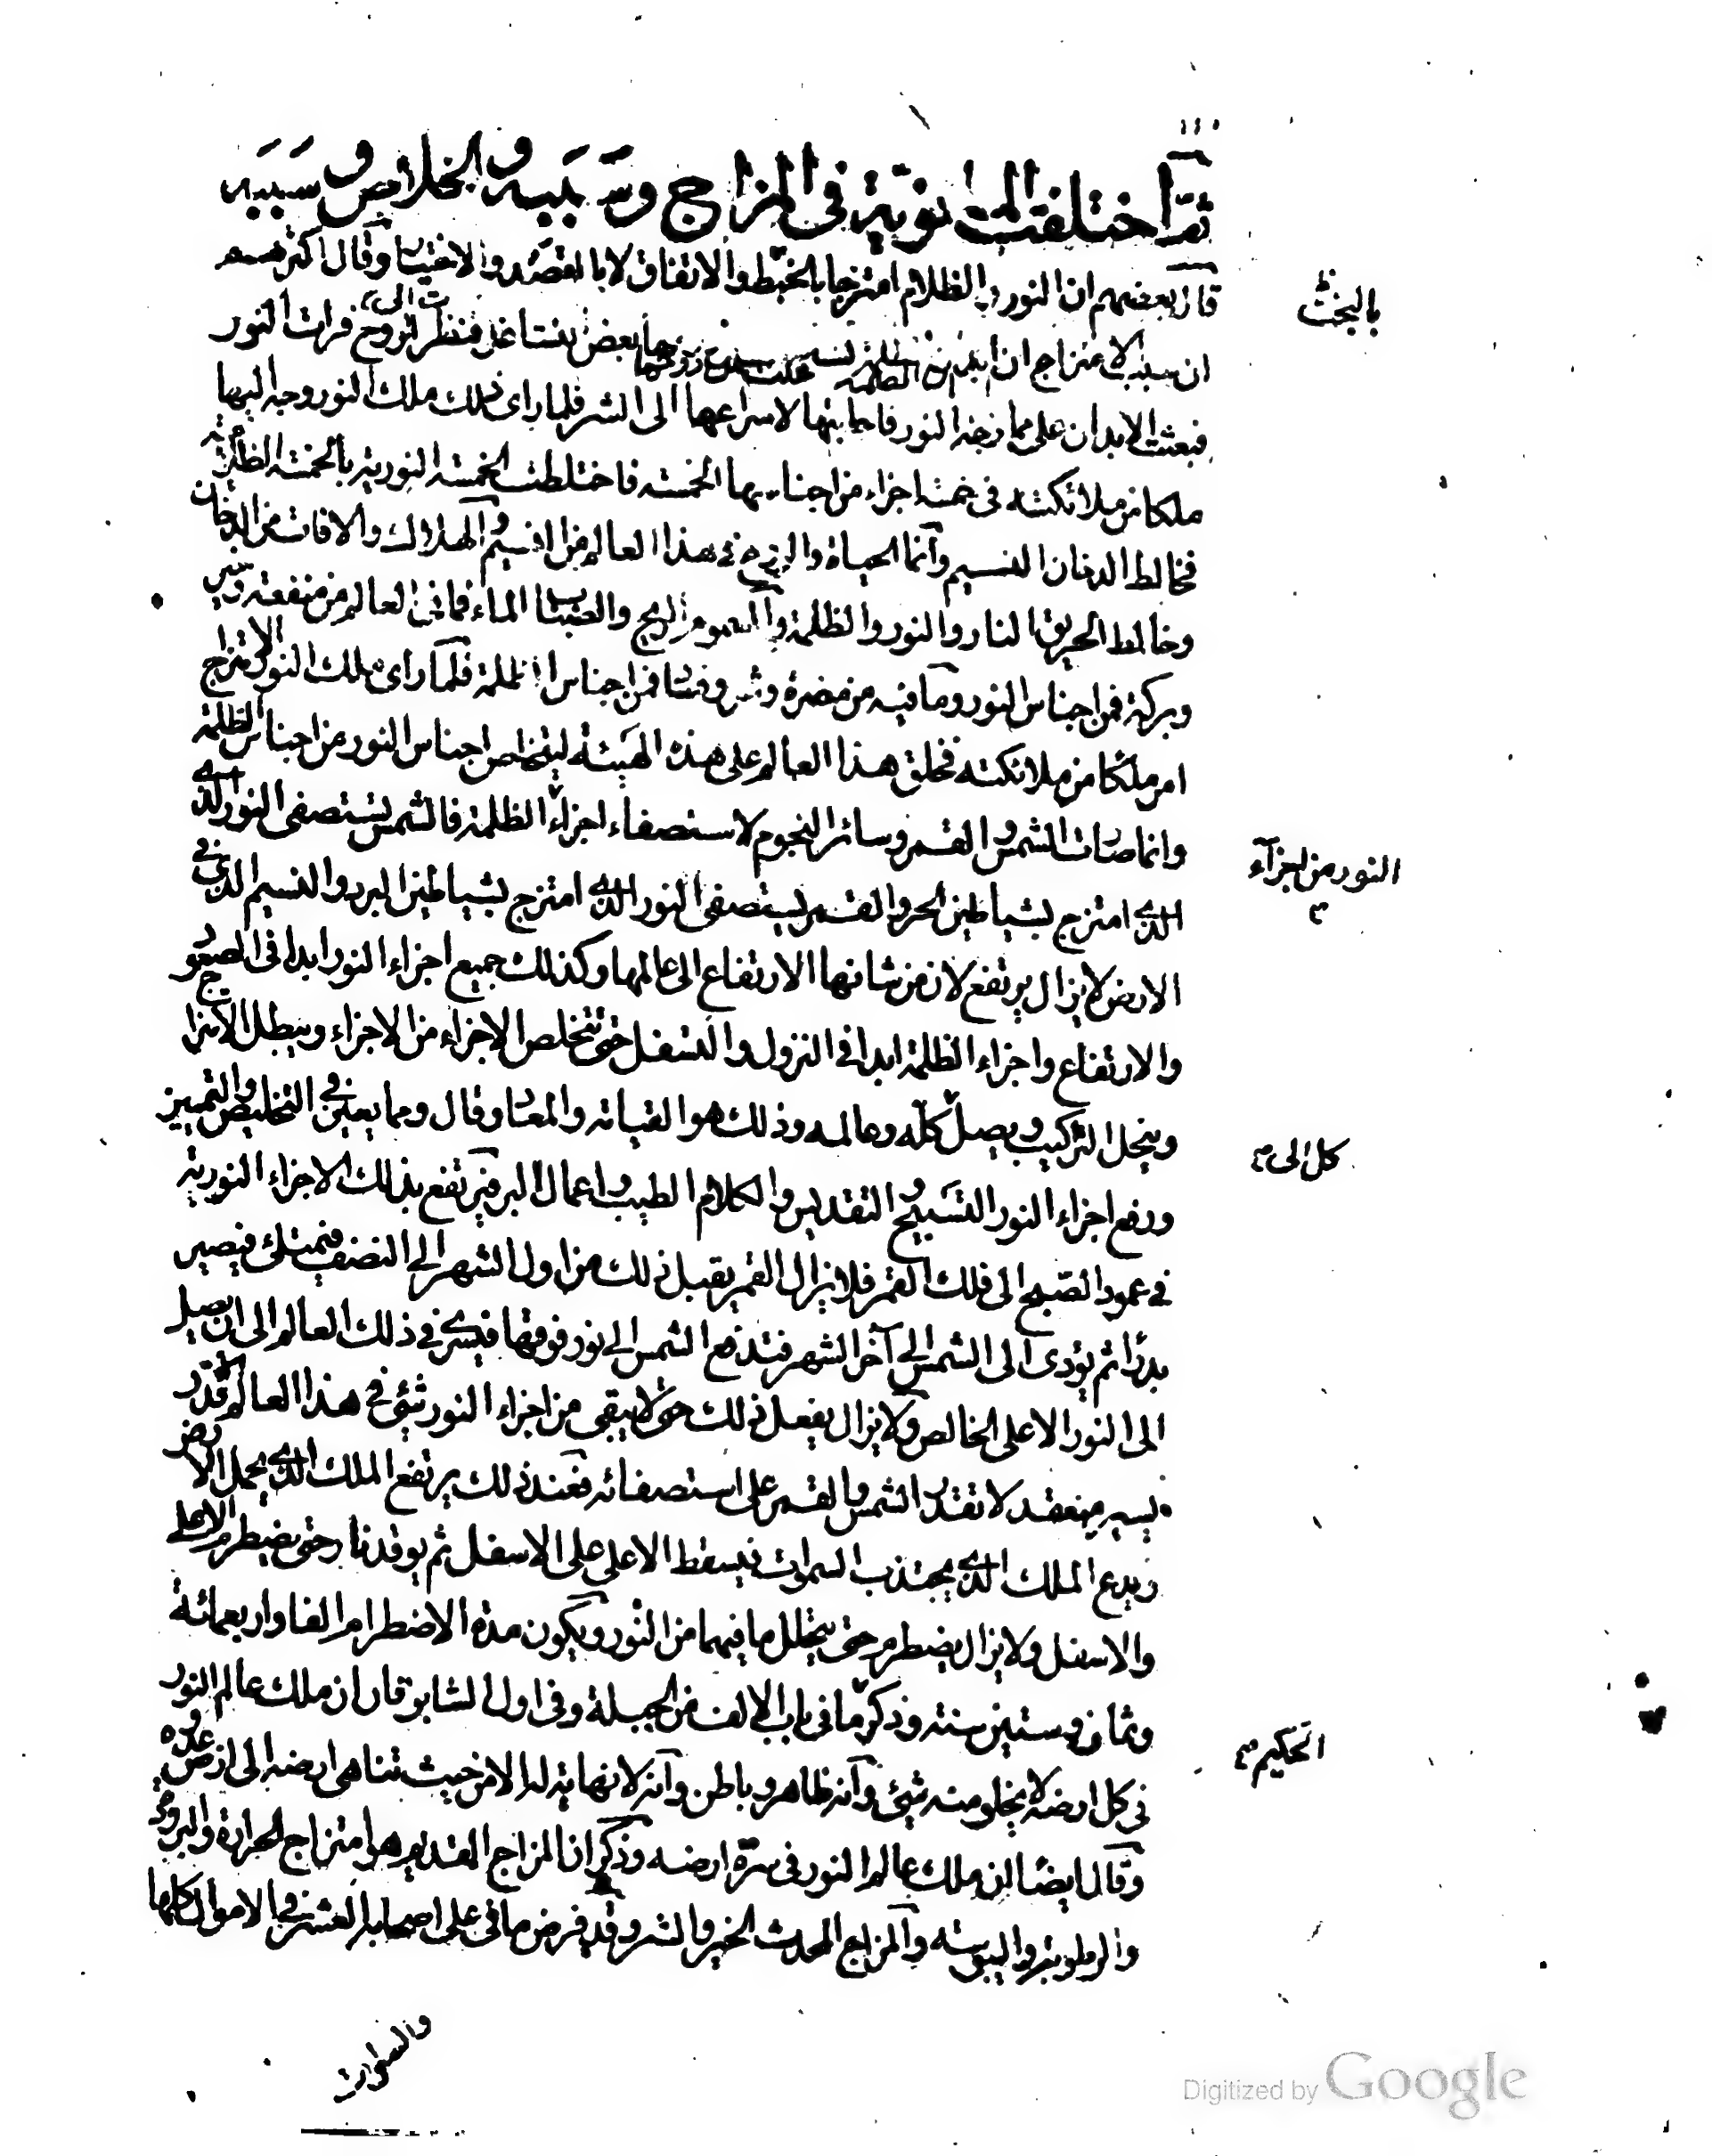 ثم اختلفت المانوية في المزاج وسببه والخلاص وسببه
قال بعضهم ان النور والظلام امتزجا بالخبط والاتفاق لا بالقصد والاختيار وقال اكثرهم
بالبخت
ان سبب الامتزاج ان ابدان الظلمة تشاغلت عن روحها بعض تشاغل فنظرت الى الروح فرات النور
فبعثت الابدان على ممازجة النور فاجابتها لاسراعها الى الشر فلما راى ذلك ملك النور وجه اليها
ملكا من ملائكته في خمسة اجزاء من اجناسها الخمسة فاختلطت الخمسة النورية بالخمسة الظلامية
فخالط الدخان النسيم وانما الحياة والروح في هذا العالم من النسيم والهلاك والافات من الدخان
وخالط الحريق النار والنور والظلمة والسموم الريح والضباب الماء فما في العالم من منفعة وخير
وبركة فمن اجناس النور وما فيه من مضرة وشر وفساد فمن اجناس الظلمة فلما راى ملك النور الامتزاج
امر ملكا من ملائكته فخلق هذا العالم على هذه الهيئة ليتخلص اجناس النور من اجناس الظلمة
وانما صارت الشمس والقمر وسائر النجوم لاستصفاء اجزاء الظلمة فالشمس تستصفى النور الذي
النور من اجزآء
الذي امتزج بشياطين الحر والقمر يستصفى النور الذي امتزج بشياطين البرد والنسيم الذي في
الارض لا يزال يرتفع لان من شانها الارتفاع الى عالمها وكذلك جميع اجزاء النور ابدا في الصعود
والارتفاع واجزاء الظلمة ابدا في النزول والتسفل حتى تتخلص الاجزاء من الاجزاء ويبطل الامتزاج
وينحل التركيب ويصل كله وعالمه وذلك هو القيامة والمعاد وقال ومما يعين في التخليص والتمييز
كل الى
ورفع اجزاء النور التسبيح والتقديس والكلام الطيب واعمال البر فيرتفع بذلك الاجزاء النورية
في عمود الصبح الى فلك القمر فلا يزال القمر يقبل ذلك من اول الشهر الى النصف فيمتلئ فيصير
بدرا ثم يؤدى الى الشمس الى آخر الشهر فتدفع الشمس الى نور فوقها فيسرى في ذلك العالم الى ان يصل
الى النور الاعلى الخالص ولا يزال يفعل ذلك حتى لا يبقى من اجزاء النور شئ في هذا العالم الا قدر
يسير منعقد لا تقدر الشمس والقمر على استصفائه فعند ذلك يرتفع الملك الذي يحمل الارض
ويدع الملك الذي يجتذب السموات فيسقط الاعلى على الاسفل ثم يوقد نار حتى يضطرم الاعلى
والاسفل ولا يزال يضطرم حتى يتحلل ما فيهما من النور ويكون مدة الاضطرام الفا واربعمائة
وثمان وستين سنة وذكر ماني في باب الالف من الجبلة وفي اول الشابوقان ان ملك عالم النور
في كل ارضه لا يخلو منه شئ وانه ظاهر وباطن وانه لا نهاية له الا من حيث تناهى ارضه الى ارض عدوه
الحكيم
وقال ايضا ان ملك عالم النور في سرة ارضه وذكر ان المزاج القديم هو امتزاج الحرارة والبرودة
والرطوبة واليبوسة والمزاج المحدث الخير والشر وقد فرض ماني على اصحابه العشر في الاموال كلها
Digitized by Google